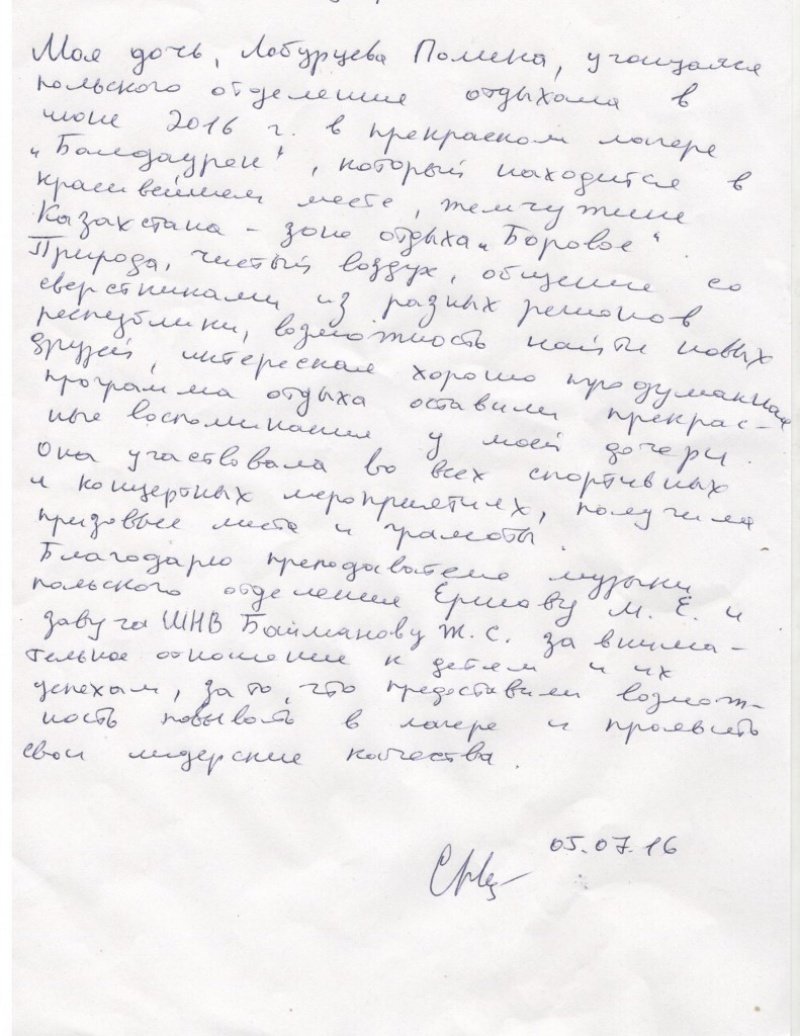 Моя дочь, Лобурцева Полина, учащаяся
польского отделения отдыхала в
июне 2016 г. в прекрасном лагере
„Балдаурен“, который находится в
красивейшем месте, жемчужине
Казахстана - зоне отдыха „Боровое“.
Природа, чистый воздух, общение со
сверстниками из разных регионов
республики, возможность найти новых
друзей, интересная хорошо продуманная
программа отдыха оставили прекрас-
ные воспоминания у моей дочери.
Она участвовала во всех спортивных
и концертных мероприятиях, получила
призовые места и грамоты.
Благодарю преподавателя музыки
польского отделения Ершову М. Е. и
завуча ШНВ Байманову Ж. С. за внима-
тельное отношение к детям и их
успехам, за то, что предоставили возмож-
ность побывать в лагере и проявить
свои лидерские качества.
05.07.16